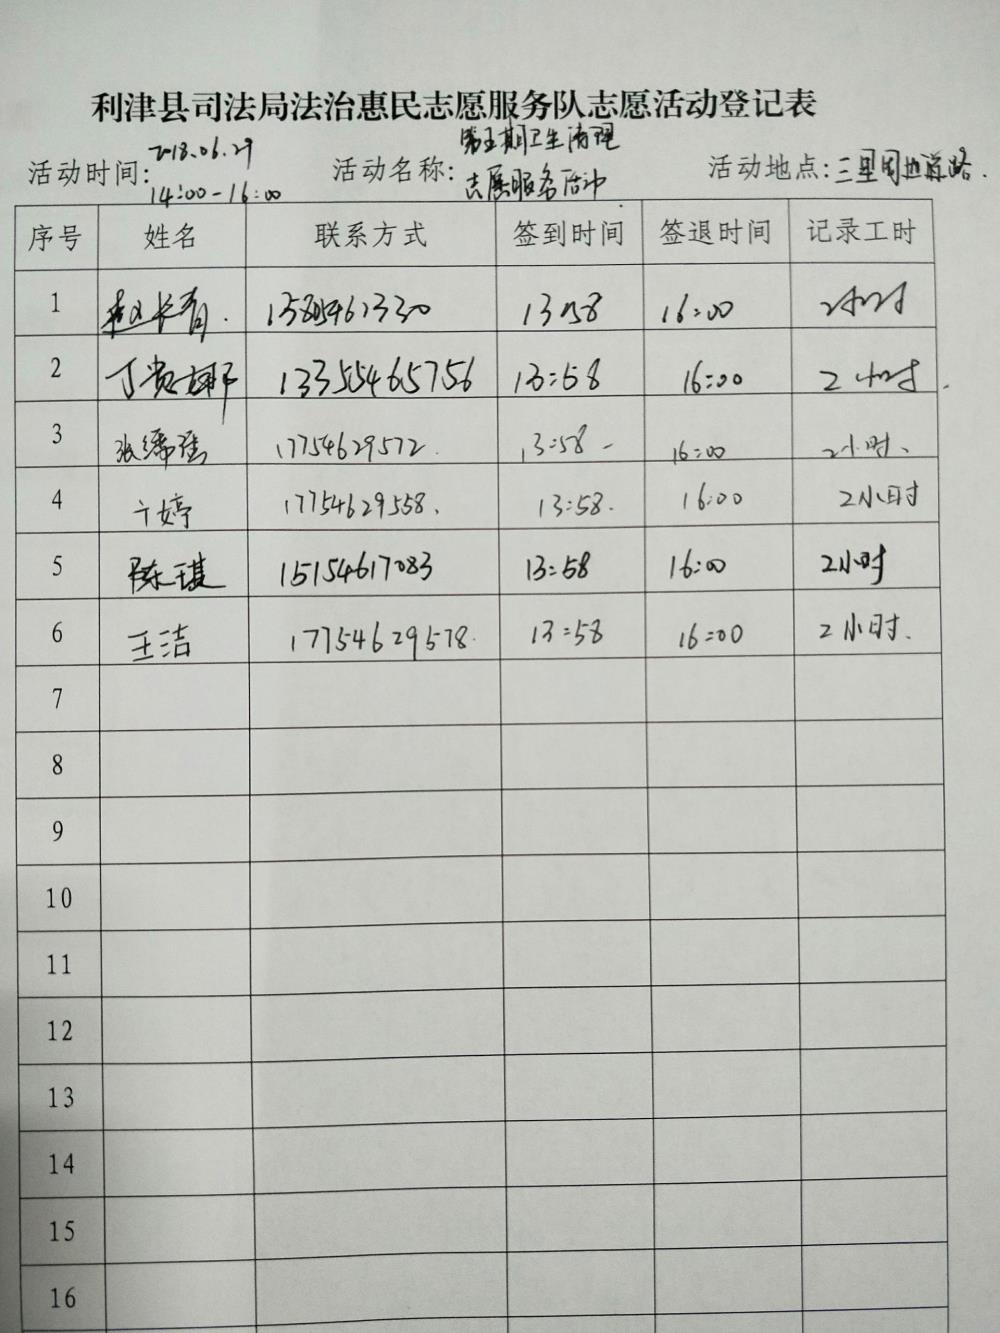 利津县司法局法治惠民志愿服务队志愿活动登记表
活动时间: 2018.06.29 14:00-16:00 活动名称: 第五期卫生清理志愿服务活动 活动地点: 三里周边道路.
序号 姓名 联系方式 签到时间 签退时间 记录工时
1 赵长青. 13:58 16:00 2小时
2 丁贵娜 13355465756 13:58 16:00 2小时.
3 张 17754629572. 13:58 16:00 2小时、
4 婷 17754629558. 13:58. 16:00 2小时
5 陈琪 15154617083 13:58 16:00 2小时
6 王洁 17754629578. 13:58 16:00 2小时.
7
8
9
10
11
12
13
14
15
16